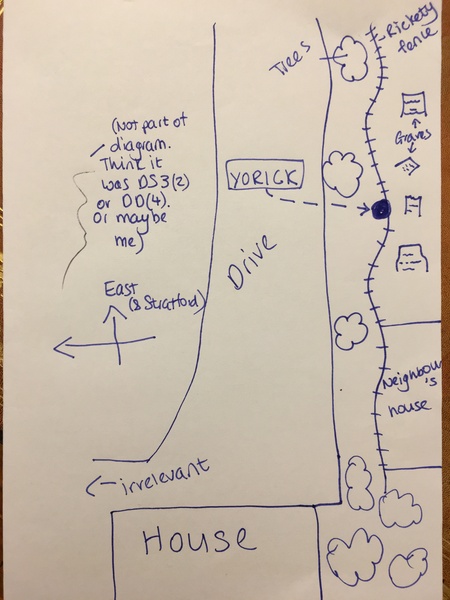 Rickety
fence
Trees
(Not part of
diagram.
Think it
was DS3(2)
or DD(4).
Or maybe
me)
Graves
YORICK
Drive
East
(& Stratford)
Neighbour's
house
irrelevant
House